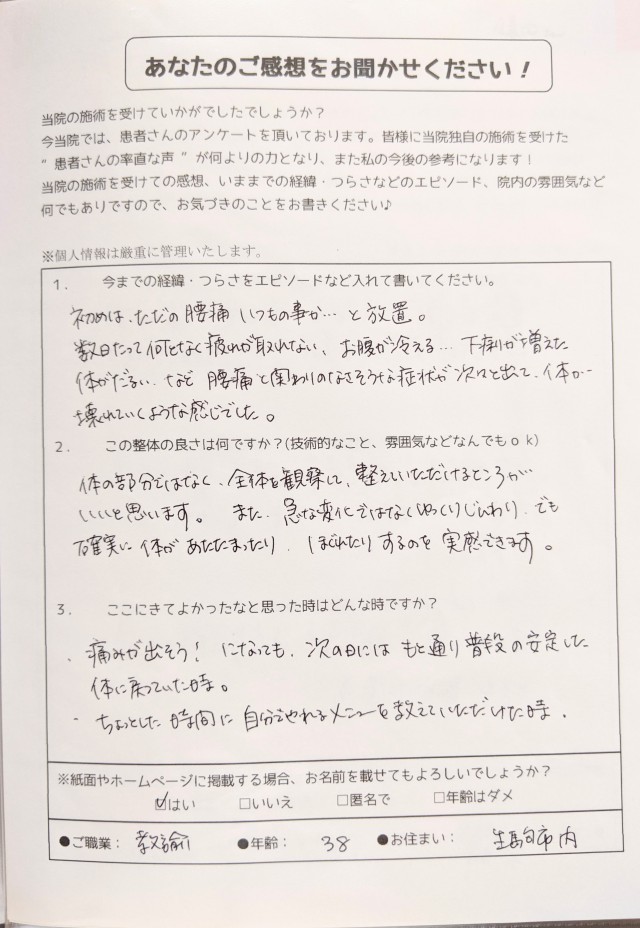 あなたのご感想をお聞かせください！
当院の施術を受けていかがでしたでしょうか？
今当院では、患者さんのアンケートを頂いております。皆様に当院独自の施術を受けた
“患者さんの率直な声”が何よりの力となり、また私の今後の参考になります！
当院の施術を受けての感想、いままでの経緯・つらさなどのエピソード、院内の雰囲気など
何でもありですので、お気づきのことをお書きください♪
※個人情報は厳重に管理いたします。
1. 今までの経緯・つらさをエピソードなど入れて書いてください。
初めは、ただの腰痛 いつもの事か…と放置。
数日たって何となく疲れが取れない、お腹が冷える…下痢が増えた
体がだるい、など 腰痛と関わりのなさそうな症状が次々と出て、体が
壊れていくような感じでした。
2. この整体の良さは何ですか？(技術的なこと、雰囲気などなんでもｏｋ)
体の部分ではなく、全体を観察して、整えていただけるところが
いいと思います。 また、急な変化ではなくゆっくりじんわり、でも
確実に体があたたまったり、ほぐれたりするのを実感できます。
3. ここにきてよかったなと思った時はどんな時ですか？
、痛みが出そう！になっても、次の日にはもと通り普段の安定した
体に戻っていた時。
- ちょっとした時間に自分でやれるメニューを教えていただけた時.
※紙面やホームページに掲載する場合、お名前を載せてもよろしいでしょうか？
☑はい □いいえ □匿名で □年齢はダメ
●ご職業： 教諭 ●年齢： 38 ●お住まい： 生駒市内